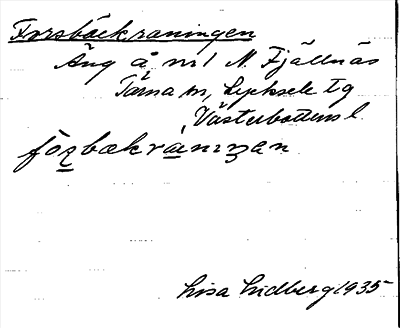 Forsbäckraningen
Äng å nr 1 N. Fjällnäs
Tärna sn, Lycksele tg
Västerbottens l.
Lisa Lidberg 1935